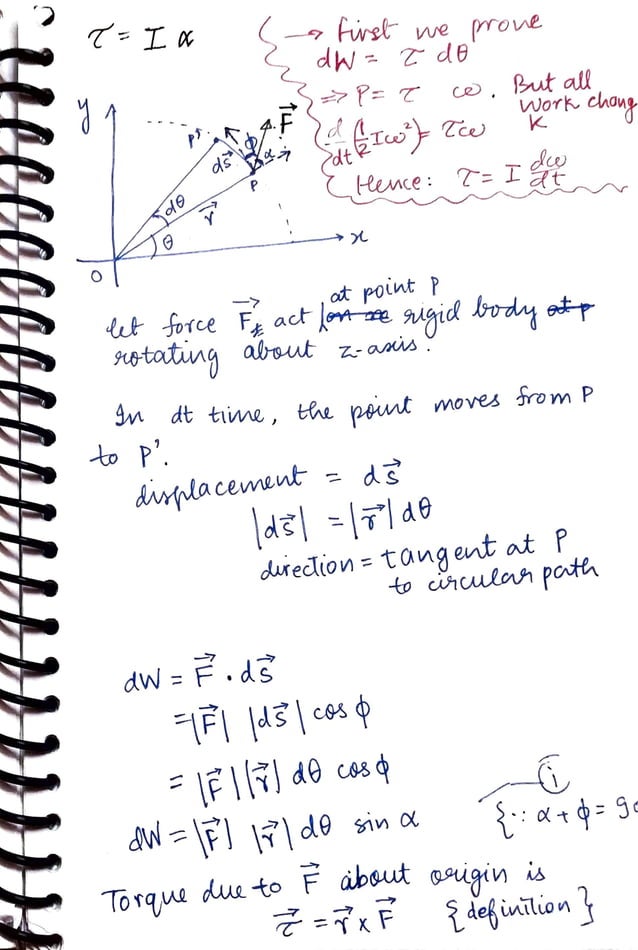 τ = I α
→ First we prove
dW = τ dθ
⇒ P = τ ω. But all
work chang
K
d/dt (1/2 Iω²) = τω
Hence: τ = I dω/dt
y
P'
ds⃗
ϕ
α
F⃗
P
dθ
r⃗
θ
O
x
let force F⃗ act at point P on rigid body at P
rotating about z-axis.
In dt time, the point moves from P
to P'.
displacement = ds⃗
|ds⃗| = |r⃗| dθ
direction = tangent at P
to circular path
dW = F⃗ . ds⃗
= |F⃗| |ds⃗| cos ϕ
= |F⃗| |r⃗| dθ cos ϕ
dW = |F⃗| |r⃗| dθ sin α
(i)
{∵ α + ϕ = 90
Torque due to F⃗ about origin is
τ⃗ = r⃗ × F⃗ {definition}